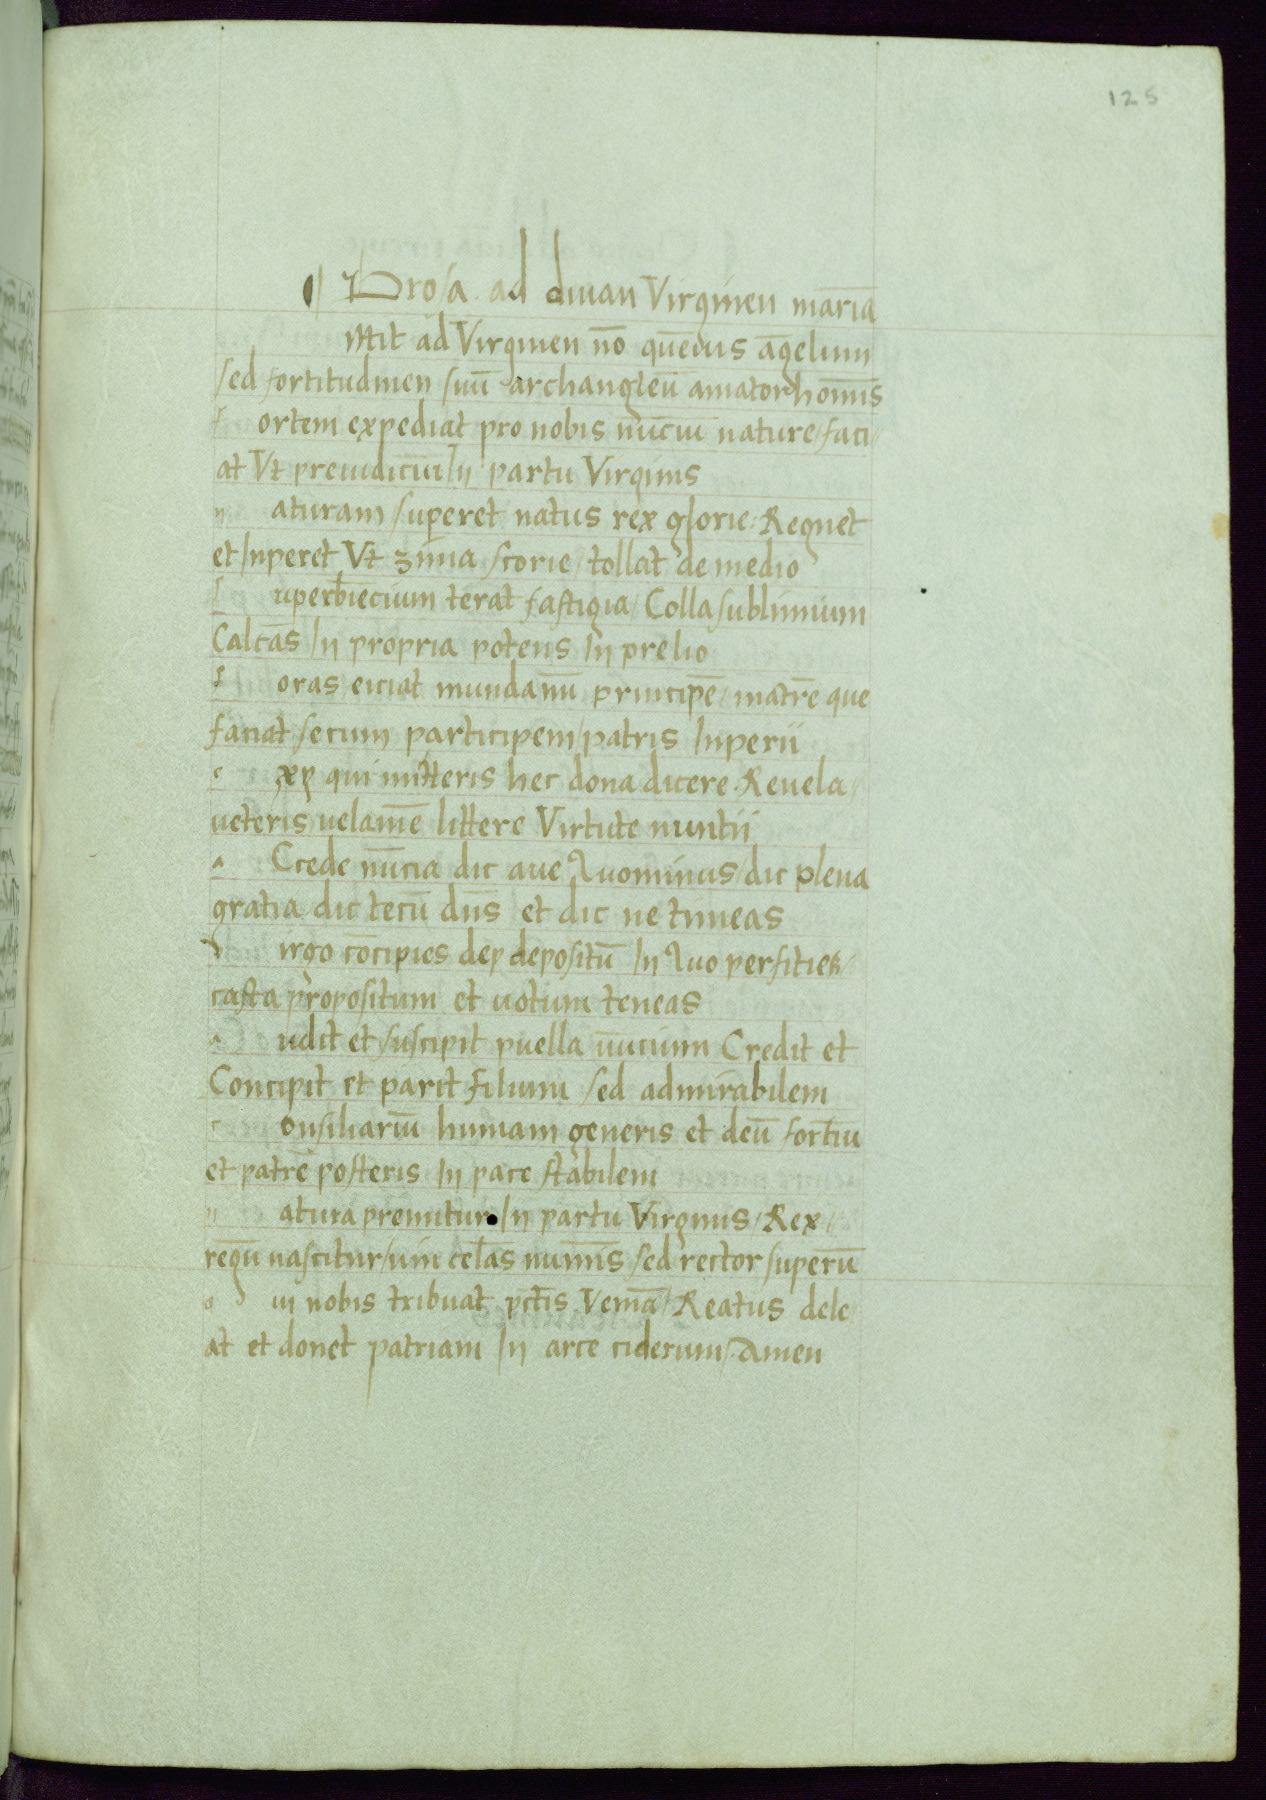 125
Prosa ad diuan Virginen mariā
Mit ad Virginen nō quēuis āgelum
sed fortitudinen suū archangleū amator homīs
f ortem expediat pro nobis nūciū nature/faci/
at Vt preiudiciū In partu Virginis
n aturam superet natus rex glorie: Regnet
et Inperet Vt zima scorie/tollat de medio
s uperbiecium terat fastigia/Colla sublimium
Calcās In propria potens In prelio
f oras eiciat mundanū principē/matrē que
faciat secum participem/patris Inperii
e xp qui mitteris hec dona dicere. Reuela/
ueteris uelamē littere Virtute nuntii
a Ccede nūcia dic aue Quominus/dic plena
gratia/dic tecū dn̄s et dic ne timeas
v irgo cōcipies dep depositū In Quo perfities/
casta propositum et uotum teneas
a udit et suscipit puella nūcium Credit et
Concipit et parit filium sed admirabilem
c onsiliariū humani generis et deū fortiū
et patrē posteris In pace stabilem
n atura premitur In partu Virginis/Rex/
regū nascitur/uim celās numīs sed rector superū
q ui nobis tribuat pctīs Veniā/Reatus dele
at et donet patriam In arce ciderum/.Amen